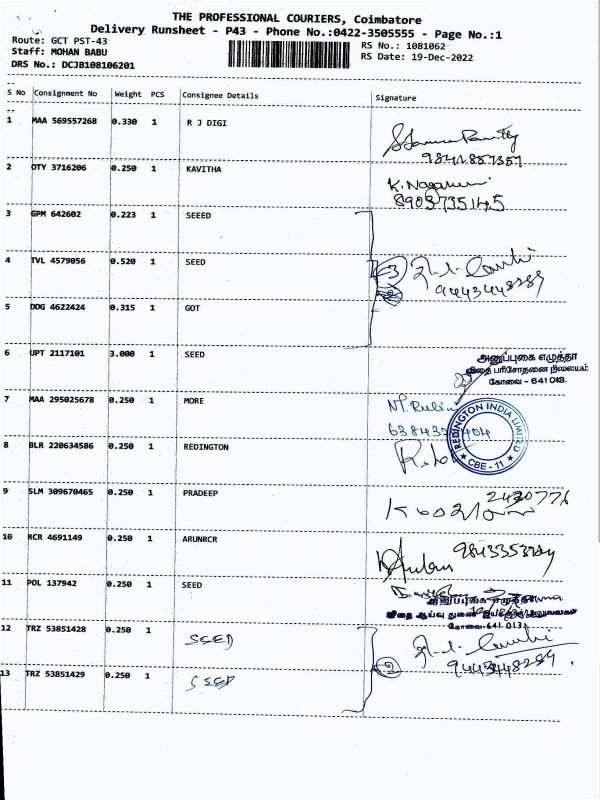 THE PROFESSIONAL COURIERS, Coimbatore
Delivery Runsheet - P43 - Phone No.:0422-3505555 - Page No.:1
Route: GCT PST-43
RS No.: 1081062
Staff: MOHAN BABU
RS Date: 19-Dec-2022
DRS No.: DCJB108106201
S No Consignment No Weight PCS Consignee Details Signature
1 MAA 569557268 0.330 1 R J DIGI
2 OTY 3716206 0.250 1 KAVITHA
8903735145
3 GPM 642602 0.223 1 SEEED
4 TVL 4579056 0.520 1 SEED
9443448289
5 DDG 4622424 0.315 1 GOT
6 UPT 2117101 3.000 1 SEED
அனுப்புகை எழுத்தர்
விதை பரிசோதனை நிலையம்
கோவை - 641 013.
7 MAA 295025678 0.250 1 MORE
REDINGTON INDIA LIMITED
CBE - 11
8 BLR 220634586 0.250 1 REDINGTON
9 SLM 309670465 0.250 1 PRADEEP
2430776
10 RCR 4691149 0.250 1 ARUNRCR
11 POL 137942 0.250 1 SEED
கோவை-641 013.
12 TRZ 53851428 0.250 1 SEED
13 TRZ 53851429 0.250 1 SEED
9443448289